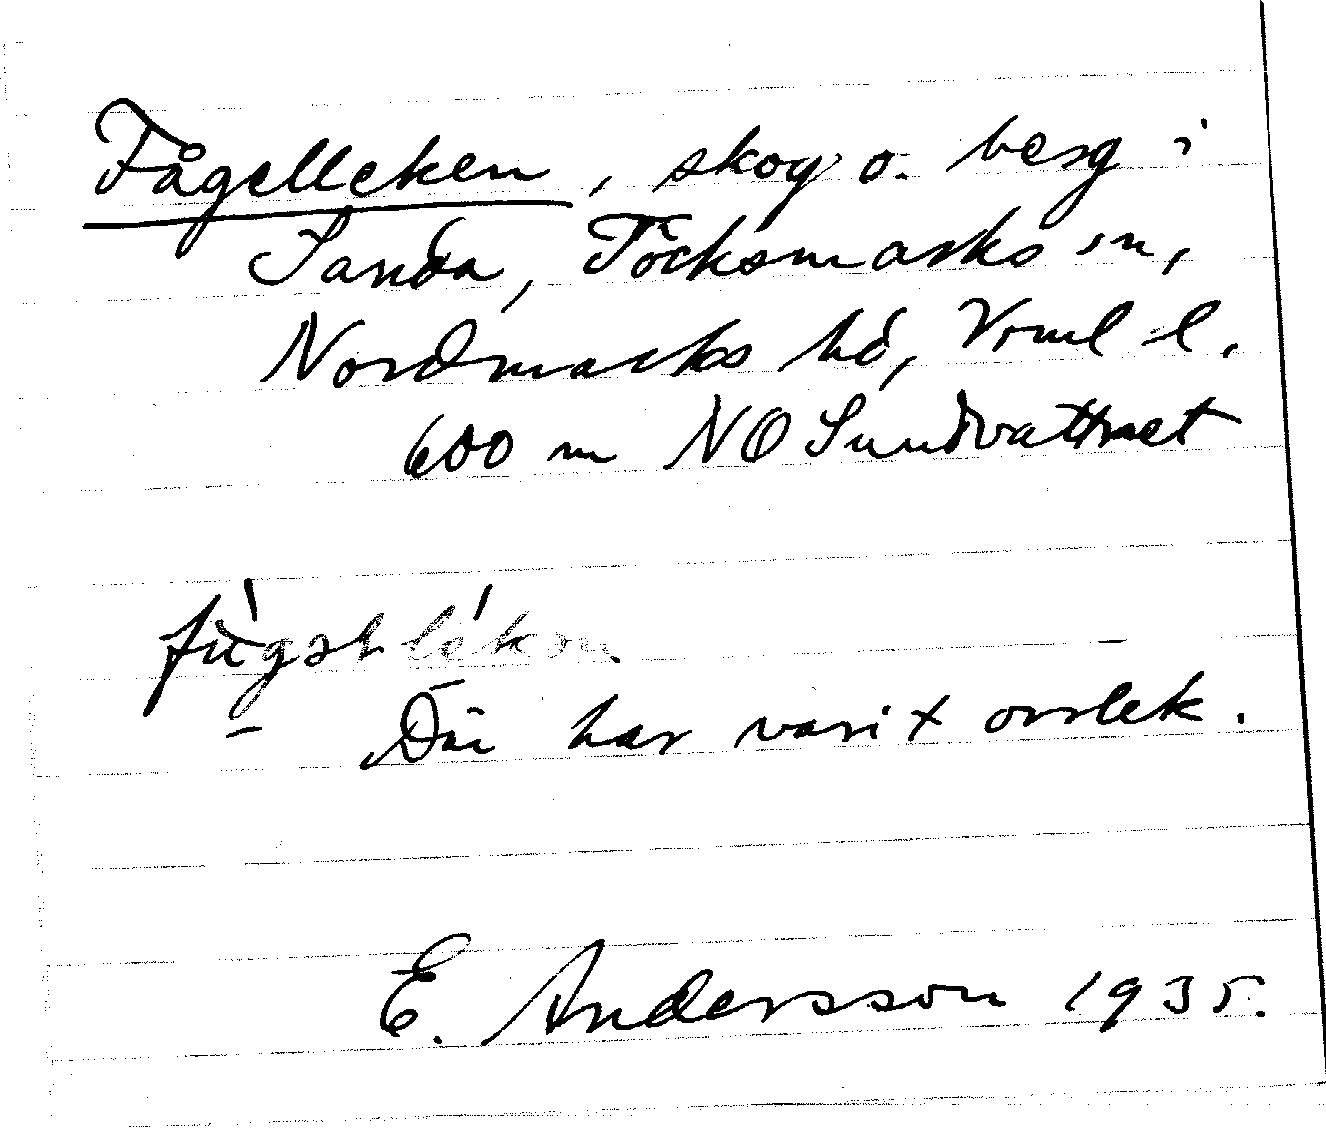 Fågelleken, skog o. berg i
Sanda, Töcksmarks sn,
Nordmarks hd, Vrml l.
600 m NO Sundvattnet
Där har varit orrlek.
E. Andersson 1935.